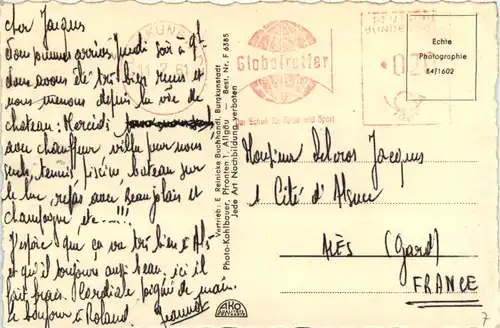 cher Jacques
sommes arrivés Jeudi soir à 9h
nous avons été très bien reçus et
nous menons depuis la vie de
chateau: Mercédès
avec chauffeur villa pour nous
seuls, tennis piscine bateau sur
le lac, repas avec Beaujolais et
champagne etc---!!!
J'espère que ça va très bien à Alès
et qu'il toujours aussi beau. ici il
fait frais. Cordiale poignée de main.
le bonjour à Roland Jeannot
Vertrieb: E. Reinicke Buchhandl. Burgkunstadt
Photo-Kohlbauer, Pfronten 1. Allgäu — Best. Nr. F 6385
Jede Art Nachbildung verboten
AKO
BURGKUNSTADT
Globetrotter
Der Schuh für Reise und Sport
DEUTSCHE
BUNDESPOST
Echte
Photographie
54/1602
Monsieur Delcros Jacques
1 Cité d'Alsace
ALÈS (Gard)
FRANCE
7